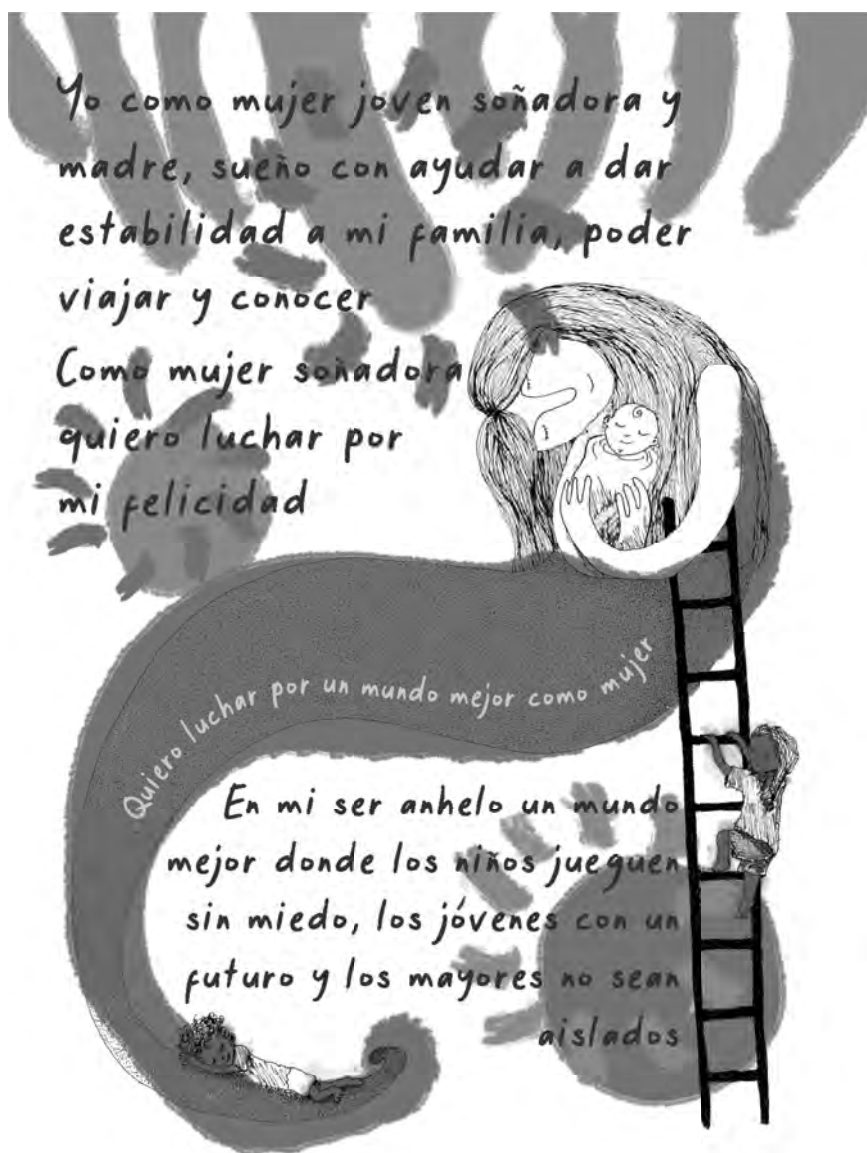 Yo como mujer joven soñadora y
madre, sueño con ayudar a dar
estabilidad a mi familia, poder
viajar y conocer
Como mujer soñadora
quiero luchar por
mi felicidad
Quiero luchar por un mundo mejor como mujer
En mi ser anhelo un mundo
mejor donde los niños jueguen
sin miedo, los jóvenes con un
futuro y los mayores no sean
aislados